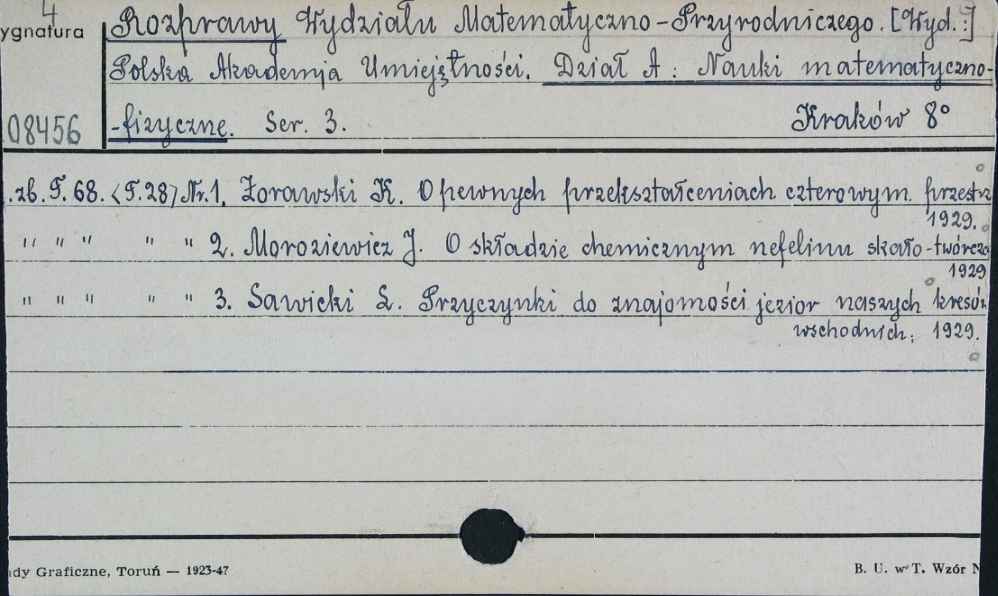 4
ygnatura Rozprawy Wydziału Matematyczno-Przyrodniczego. [Wyd.:]
Polska Akademja Umiejętności. Dział A: Nauki matematyczno-
08456 -fizyczne. Ser. 3. Kraków 8°
.zb. T. 68. <T.28> Nr. 1. Żorawski K. O pewnych przekształceniach czterowym. przestrz
1929.
" " " " " 2. Moroziewicz J. O składzie chemicznym nefelinu skało-twórcze
1929
" " " " " 3. Sawicki L. Przyczynki do znajomości jezior naszych kresów
wschodnich. 1929.
dy Graficzne, Toruń — 1923-47 B. U. w T. Wzór N